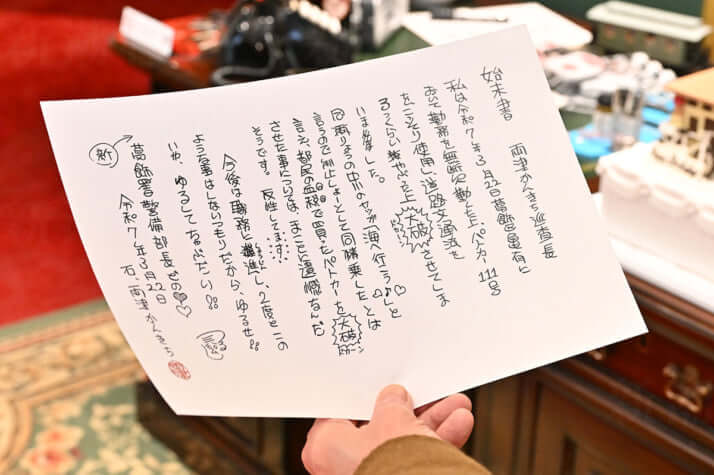 始末書
両津かんきち巡査長
私は令和7年3月22日葛飾區亀有に
おいて勤務を無断で動した上、パトカー111号
をこっそり使用し、道路交通法を
るっくらい華やかな上大破させてしま
いました。
同ありょうの中川のヤツが「海へ行こうよ♡」と
言うので阻止しよーとして同情乗したとは
言え、都民の血税で買ったパトカーを大破
させた事については、まことに遺憾なんだ
そうです。反性してます、
今後は職務に邁進し、2度とこの
ような事はしないつもりだから、ゆるせ!!
いや、ゆるしてちょうだい!!
新
葛飾署警備部長どの♡
令和7年3月22日
右、両津かんきち